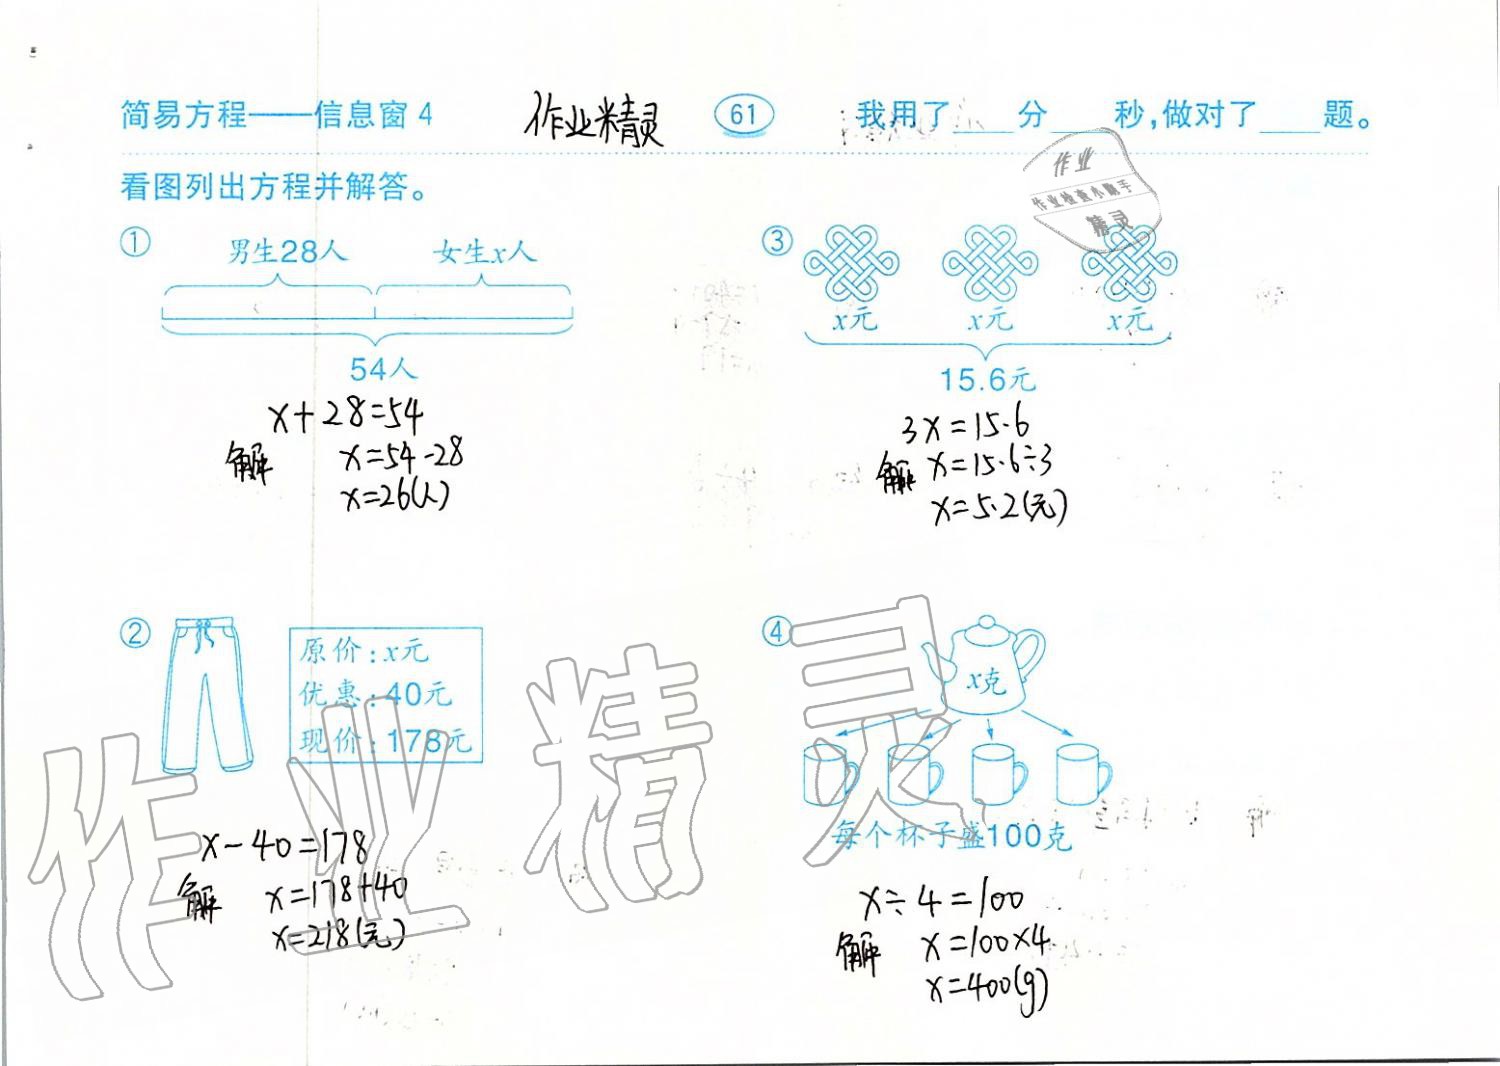 简易方程——信息窗4 作业精灵 61 我用了___分___秒,做对了___题。
作业
作业检查小助手
精灵
看图列出方程并解答。
①
男生28人 女生x人
54人
x+28=54
解 x=54-28
x=26(人)
②
原价:x元
优惠:40元
现价:178元
x-40=178
解 x=178+40
x=218(元)
③
x元 x元 x元
15.6元
3x=15.6
解 x=15.6÷3
x=5.2(元)
④
x克
每个杯子盛100克
x÷4=100
解 x=100×4
x=400(g)
作业精灵